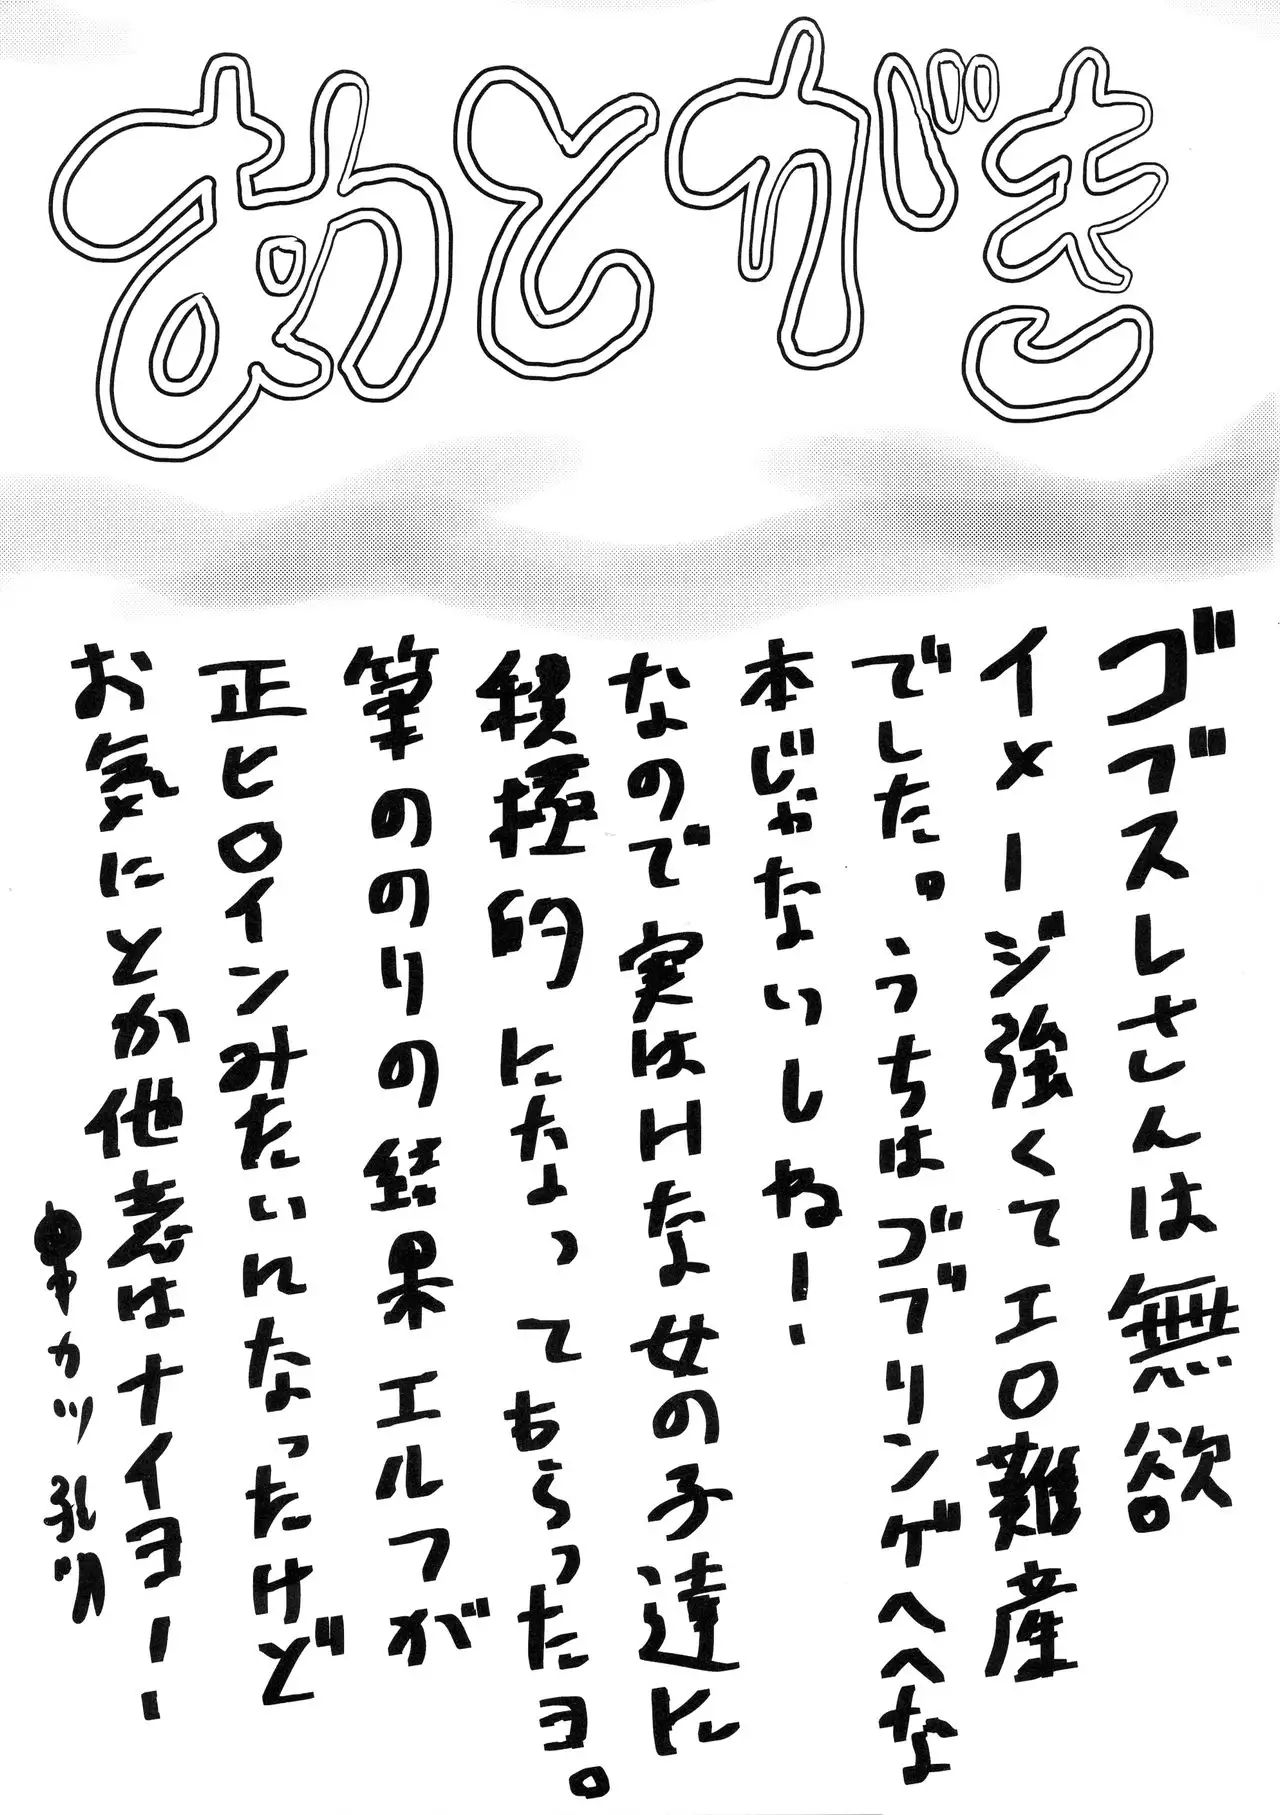 あとがき
ゴブスレさんは無欲
イメージ強くてエロ難産
でした。うちはゴブリンゲヘヘな
本じゃないしね!
なので実はHな女の子達に
積極的になってもらったヨ。
筆ののりの結果エルフが
正ヒロインみたいになったけど
お気にとか他意はナイヨー!